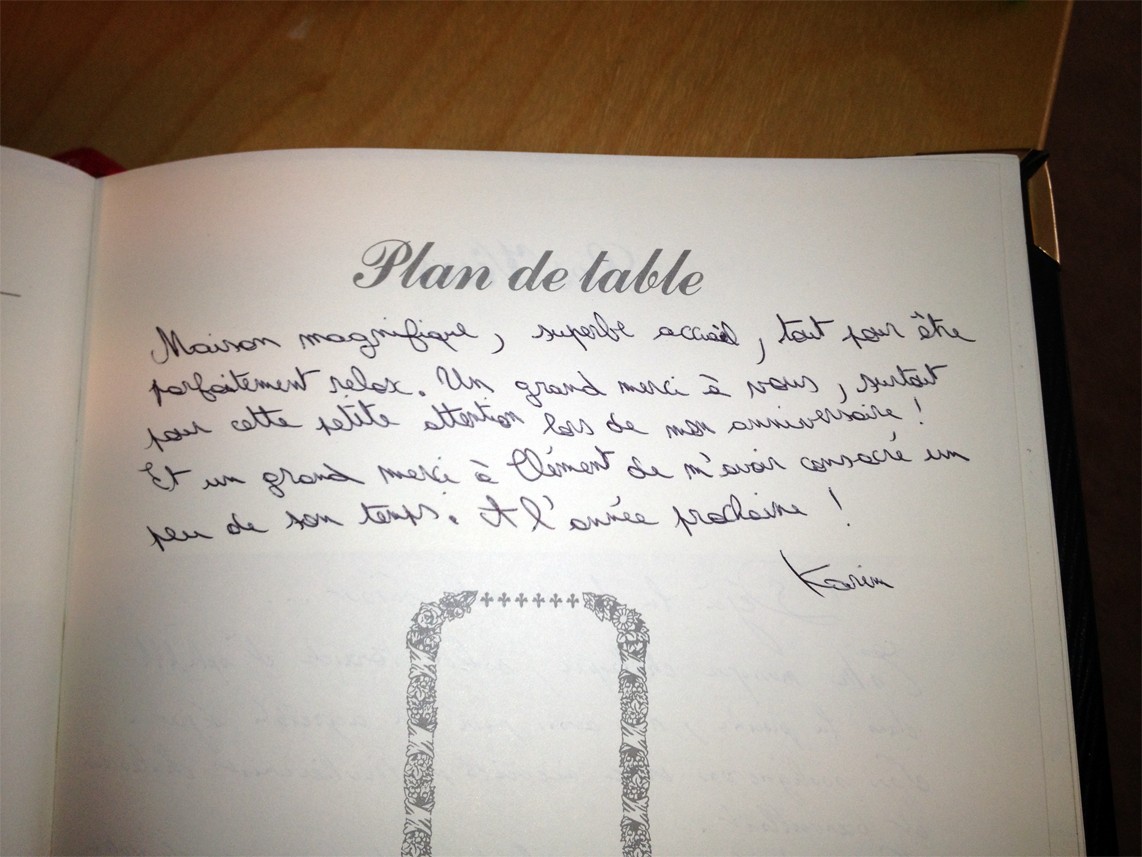 Plan de table
Maison magnifique, superbe accueil, tout pour être
parfaitement relax. Un grand merci à vous, surtout
pour cette petite attention lors de mon anniversaire !
Et un grand merci à Clément de m'avoir consacré un
peu de son temps. A l'année prochaine !
Karim